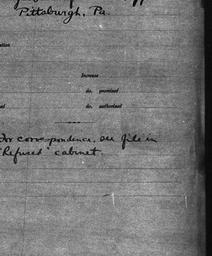 Pittsburgh, Pa.
Increase
do. promised
do. authorized
For correspondence, see file in
"Refused" cabinet.